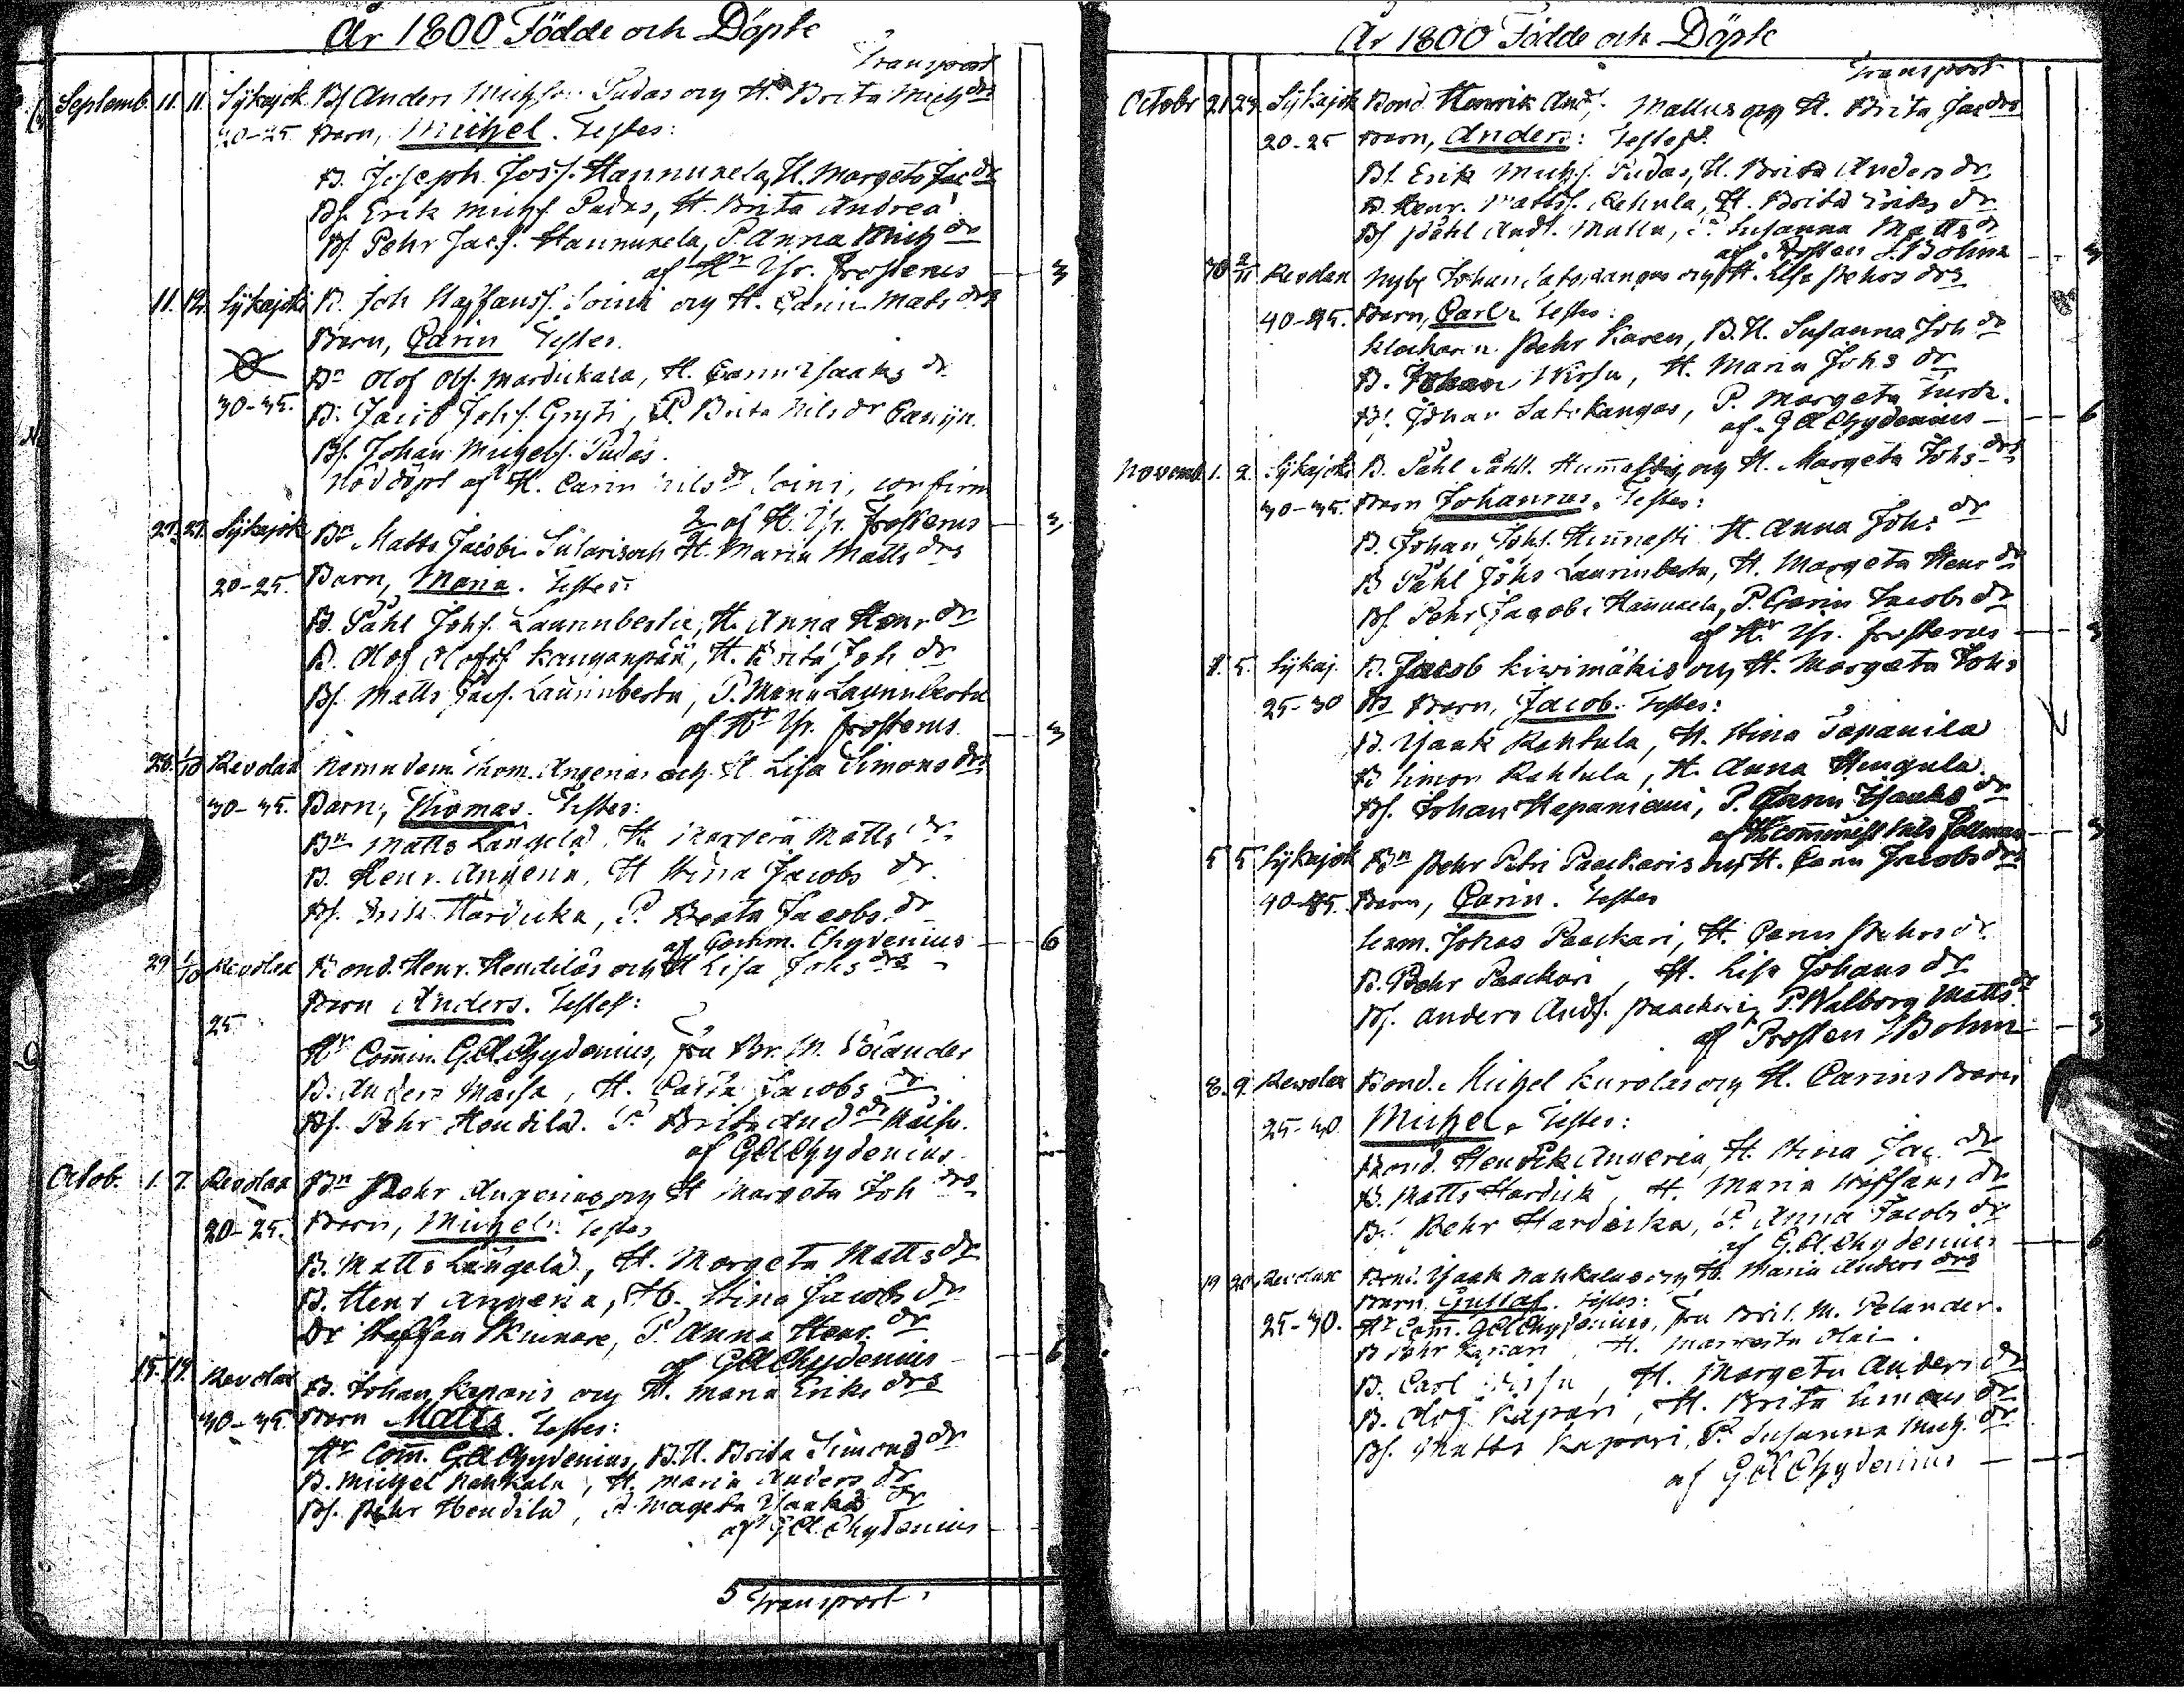 År 1800 Födde och Döpte
Transport
Septemb. 11. 11. Sykajok Bs Anders Michss. Pudas og H. Brita Mich drs
20-25 Barn, Michel. Testes:
B. Joseph Joss. Hannukela, H. Margeta Jac dr
Bs. Erik Michs. Pudas, H. Brita Andrea
Bs. Pehr Jacs. Hannukela, P. Anna Mich dr
af Hr Yr. Frosterus 3
11. 12. Sykajoki B. Joh Staffanss. Soini og H. Carin Mats drs
Barn, Carin Testes.
Bn Olof Ols. Mardukala, H. Carin Isaaks dr
30-35. B. Jacob Johs. Gryti, P. Brita Nils dr
Bs. Johan Michels. Pudas.
Nöddöpt af H. Carin Nils dr Soini, confirm
af H. Yr. Frosterus 3
27. 27. Sykajok Bn Matts Jacobi och H. Maria Matts drs
20-25. Barn, Maria. Testes:
B. Påhl Johs. Laurinberta, H. Anna Henr dr
B. Olof Olofss Kanganpää, H. Brita Joh dr
Bs. Matts Jacs. Laurinberta, P. Maria Laurinberta
af Hr Yr. Frosterus. 3
28. 1/10 Revolax Nemndem. Thom. Angerias och H. Lisa Simons drs
30-35. Barn, Thomas. Testes:
Bn Matts Långelä, H. Margeta Matts dr
B. Henr. Angeria, H Stina Jacobs dr.
Bs. Erik Harducka, P. Beata Jacobs dr
af Comm. Chydenius 6
29 1/10 Revolax Bond. Henr. Hendiläs och H Lisa Johs drs
Barn Anders. Testes:
25.
Hr Comin. G A Chydenius, Fru Br. M. Pelander
B. Anders Maisa, H. Caisa Jacobs dr
Bs. Pehr Hendilä. P. Brita And dr Maisa.
af G A Chydenius
Octob. 1. 7. Revolax Bn Pehr Angerias og H Margeta Joh drs
20-25. Barn, Michel. Testes
B. Matts Långelä, H. Margeta Matts dr
B. Henr Angeria, H. Stina Jacobs dr
Dr Staffan Skinnare, P. Anna Henr. dr
af G A Chydenius 6
15. 19. Revolax B. Johan Kaparis og H. Maria Eriks drs
30-35. Barn Matts. Testes:
Hr Com. G A Chydenius, B. H. Brita Simons dr
B. Michel Nahkala, H. Maria Anders dr
Bs. Pehr Hendilä, P. Mageta Isaaks dr
af G A Chydenius
5 Transport
År 1800 Födde och Döpte
Transport
Octobr 21 23 Sykajok Bond. Henrik And. Mallus og H. Brita Jac drs
20-25 Barn, Anders: Testes
Bs. Erik Michs. Pudas, H. Brita Anders dr
B. Henr. Mattss. Rehula, H. Brita Eriks dr
Bs Påhl Ands. Mallu, P. Susanna Matts dr
af Prosten S. Bohm 3
30 2/11 Revolax Nyb. Johan Satokangas og H. Elsa Pehrs drs
40-45. Barn, Carl Testes:
Klockaren Pehr Karen, B. H. Susanna Joh dr
B. Johan Wirsu, H. Maria Johs dr
Bs. Johan Satokangas, P. Margeta Turck.
af G A Chydenius 6
Novemb. 1. 2. Sykajoki B. Påhl Påhls. Hummasti og H. Margeta Johs drs
30-35. Barn Johannes. Testes:
B. Johan Johs. Hummasti H. Anna Johs dr
B Påhl Johs Laurinberta, H. Margeta Henr dr
Bs. Pehr Jacobs Hannukela, P. Carin Jacobs dr
af Hr Yr. Frosterus 3
1. 5. Sykaj. B. Jacob Kiwimäkis og H. Margeta Johs
25-30 drs Barn, Jacob. Testes:
B. Isaak Rahtula, H. Stina Papanila
B Simon Rahtula, H. Anna Hengula.
Bs. Johan Hapaniemi, P. Carin Isaaks dr
af Hr Comminist Nils Fellman 3
5 5 Sykajok Bn Pehr Petri Paackaris og H. Carin Jacobs drs
40-45. Barn, Carin. Testes
Sexm. Johas Paackari, H. Carin Pehrs dr.
B. Pehr Paackari, H. Lisa Johans dr
Bs. Anders Ands. Paackari, P. Walborg Matts dr
af Prosten S Bohm 3
8. 9. Revolax Bond. Michel Kurolas og H. Carins Barn
25-30 Michel. Testes:
Bond. Hendrik Angeria, H. Stina Jac. dr
B. Matts Harduck, H. Maria Staffans dr
Bs. Pehr Harducka, P. Anna Jacobs dr
af G. A. Chydenius 6
19 20 Revolax Bond. Isaak Nahkalas og H. Maria Anders drs
Barn Gustaf. Testes:
25-30. Hr Com. G A Chydenius, Fru Brit. M. Pelander.
B Pehr Kapari, H. Margeta Olai.
B. Carl Wirsu, H. Margeta Anders dr
B. Olof Kapari, H. Brita Simons dr
Bs. Matts Kapari, P. Susanna Mich. dr
af G A Chydenius